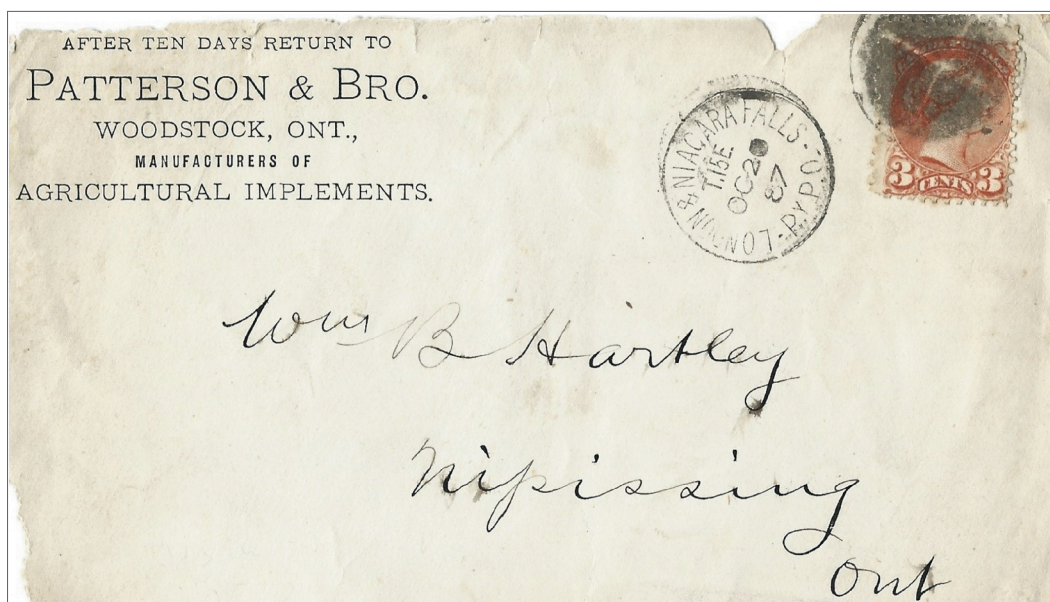 AFTER TEN DAYS RETURN TO
PATTERSON & BRO.
WOODSTOCK, ONT.,
MANUFACTURERS OF
AGRICULTURAL IMPLEMENTS.
LONDON & NIAGARA FALLS - R.Y.P.O.
T.15E.
OC 20
87
3 CENTS 3
Wm B Hartley
Nipissing
Ont